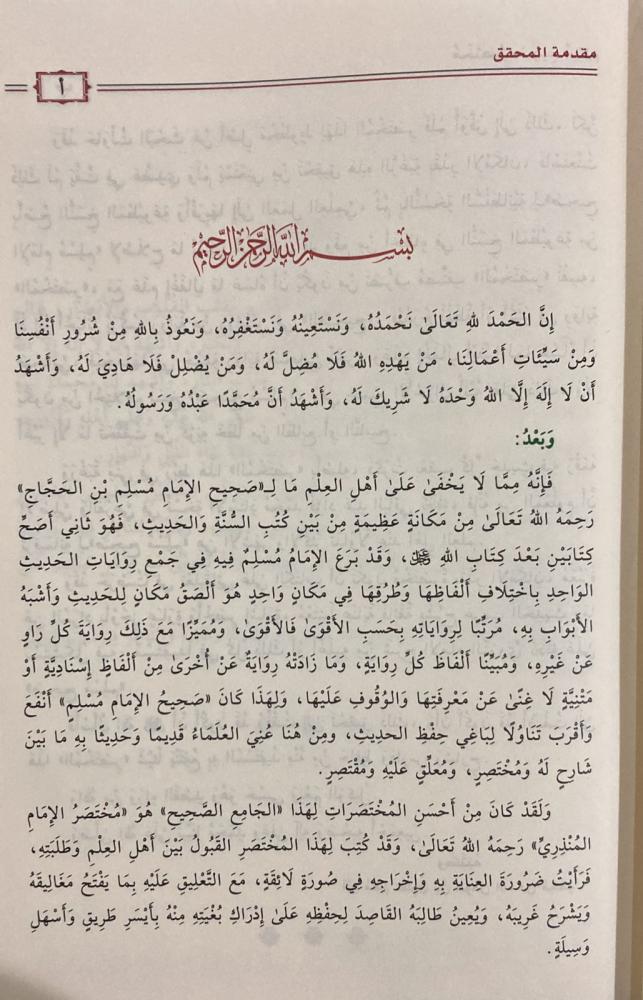 مقدمة المحقق
أ
بِسْمِ اللَّهِ الرَّحْمَٰنِ الرَّحِيمِ
إِنَّ الحَمْدَ لِلهِ تَعَالَىٰ نَحْمَدُهُ، وَنَسْتَعِينُهُ وَنَسْتَغْفِرُهُ، وَنَعُوذُ بِاللهِ مِنْ شُرُورِ أَنْفُسِنَا
وَمِنْ سَيِّئَاتِ أَعْمَالِنَا، مَنْ يَهْدِهِ اللهُ فَلَا مُضِلَّ لَهُ، وَمَنْ يُضْلِلْ فَلَا هَادِيَ لَهُ، وَأَشْهَدُ
أَنْ لَا إِلَهَ إِلَّا اللهُ وَحْدَهُ لَا شَرِيكَ لَهُ، وَأَشْهَدُ أَنَّ مُحَمَّدًا عَبْدُهُ وَرَسُولُهُ.
وَبَعْدُ:
فَإِنَّهُ مِمَّا لَا يَخْفَىٰ عَلَىٰ أَهْلِ العِلْمِ مَا لِـ«صَحِيحِ الإِمَامِ مُسْلِمِ بْنِ الحَجَّاجِ»
رَحِمَهُ اللهُ تَعَالَىٰ مِنْ مَكَانَةٍ عَظِيمَةٍ مِنْ بَيْنِ كُتُبِ السُّنَّةِ وَالحَدِيثِ، فَهُوَ ثَانِي أَصَحِّ
كِتَابَيْنِ بَعْدَ كِتَابِ اللهِ ﷻ، وَقَدْ بَرَعَ الإِمَامُ مُسْلِمٌ فِيهِ فِي جَمْعِ رِوَايَاتِ الحَدِيثِ
الوَاحِدِ بِاخْتِلَافِ أَلْفَاظِهَا وَطُرُقِهَا فِي مَكَانٍ وَاحِدٍ هُوَ أَلْصَقُ مَكَانٍ لِلحَدِيثِ وَأَشْبَهُ
الأَبْوَابِ بِهِ، مُرَتِّبًا لِرِوَايَاتِهِ بِحَسَبِ الأَقْوَىٰ فَالأَقْوَىٰ، وَمُمَيِّزًا مَعَ ذَلِكَ رِوَايَةَ كُلِّ رَاوٍ
عَنْ غَيْرِهِ، وَمُبَيِّنًا أَلْفَاظَ كُلِّ رِوَايَةٍ، وَمَا زَادَتْهُ رِوَايَةٌ عَنْ أُخْرَىٰ مِنْ أَلْفَاظٍ إِسْنَادِيَّةٍ أَوْ
مَتْنِيَّةٍ لَا غِنًىٰ عَنْ مَعْرِفَتِهَا وَالوُقُوفِ عَلَيْهَا، وَلِهَذَا كَانَ «صَحِيحُ الإِمَامِ مُسْلِمٍ» أَنْفَعَ
وَأَقْرَبَ تَنَاوُلًا لِبَاغِي حِفْظِ الحَدِيثِ، ومِنْ هُنَا عُنِيَ العُلَمَاءُ قَدِيمًا وَحَدِيثًا بِهِ مَا بَيْنَ
شَارِحٍ لَهُ وَمُخْتَصِرٍ، وَمُعَلِّقٍ عَلَيْهِ وَمُقْتَصِرٍ.
وَلَقَدْ كَانَ مِنْ أَحْسَنِ المُخْتَصَرَاتِ لِهَذَا «الجَامِعِ الصَّحِيحِ» هُوَ «مُخْتَصَرُ الإِمَامِ
المُنْذِرِيِّ» رَحِمَهُ اللهُ تَعَالَىٰ، وَقَدْ كُتِبَ لِهَذَا المُخْتَصَرِ القَبُولُ بَيْنَ أَهْلِ العِلْمِ وَطَلَبَتِهِ،
فَرَأَيْتُ ضَرُورَةَ العِنَايَةِ بِهِ وَإِخْرَاجِهِ فِي صُورَةٍ لَائِقَةٍ، مَعَ التَّعْلِيقِ عَلَيْهِ بِمَا يَفْتَحُ مَغَالِيقَهُ
وَيَشْرَحُ غَرِيبَهُ، وَيُعِينُ طَالِبَهُ القَاصِدَ لِحِفْظِهِ عَلَىٰ إِدْرَاكِ بُغْيَتِهِ مِنْهُ بِأَيْسَرِ طَرِيقٍ وَأَسْهَلِ
وَسِيلَةٍ.